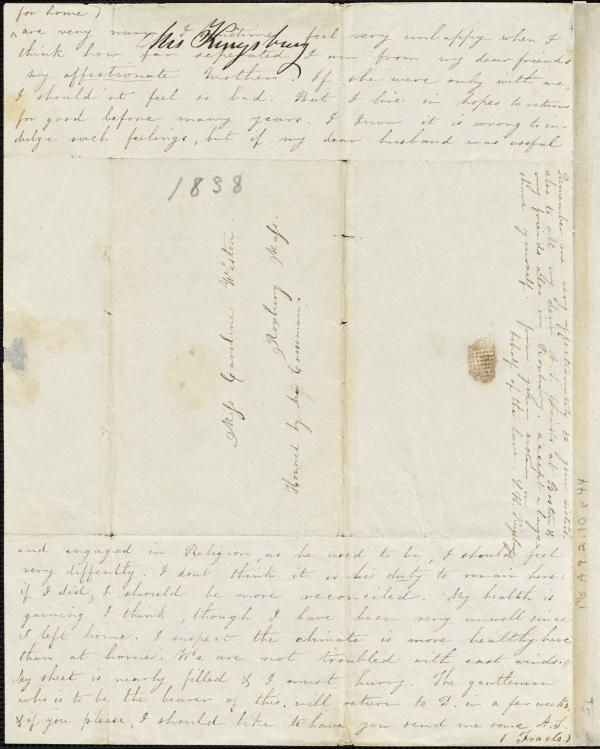 for home)
^are very many I feel very unhappy when I
Mrs Kingsbury
think how far seperated I am from my dear friends
my affectionate Mother. If she were only with me,
I should n't feel so bad. But I live in hopes to return
for good before many years. I know it is wrong to in-
dulge such feelings, but if my dear husband was useful
1838
Miss Caroline Weston.
Roxbury Mass.
Honored by Mr
Remember me very affectionately to your sisters
also to all my dear A.S. friends at Boston &
my friends also in Roxbury. accept a large
share of myself. from
of the Kingsbury
and engaged in Religion, as he used to be, I should feel
very differently. I dont think it is his duty to remain here:
if I did, I should be more reconciled. My health is
gaining I think, though I have been very unwell since
I left home. I suspect the climate is more healthy here
than at home. We are not troubled with east winds.
My sheet is nearly filled & I must hurry. The gentleman
who is to be the bearer of this, will return to D. in a few weeks,
& if you please, I should like to have you send me some A.S.
(Tracts)